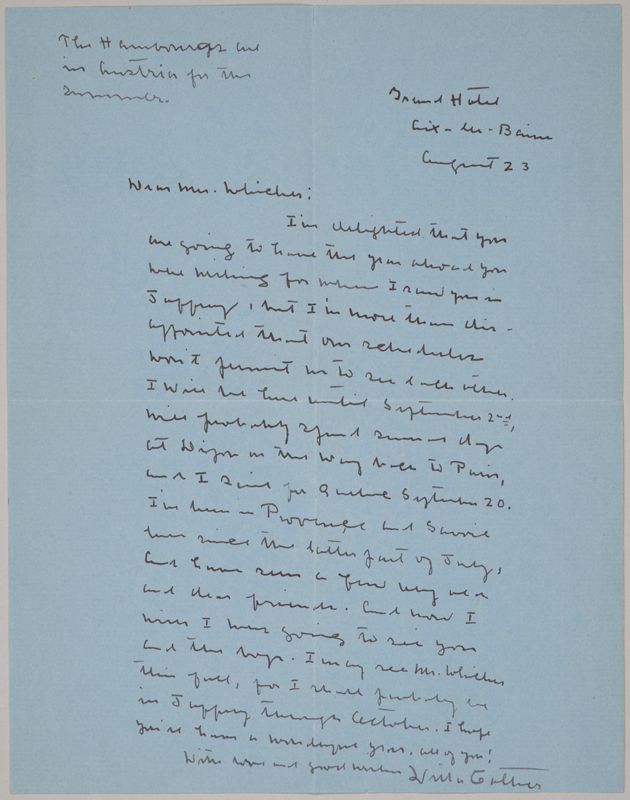 The Hambourgs are
in Austria for the
summer.
Grand Hotel
Aix-les-Bains
August 23
Dear Mrs. Whicher:
I'm delighted that you
are going to have the year abroad you
were wishing for when I saw you in
Jaffrey, but I'm more than dis-
appointed that our schedules
won't permit us to see each other.
I will be here until September 2nd,
will probably spend several days
at Dijon on the way back to Paris,
and I sail for Quebec September 20.
I've been in Provence and Savoie
ever since the latter part of July,
and have seen a few very old
and dear friends. And now I
wish I were going to see you
and the boys. I may see Mr. Whicher
this fall, for I shall probably be
in Jaffrey through October. I hope
you'll have a wonderful year, all of you!
With love and good wishes
Willa Cather